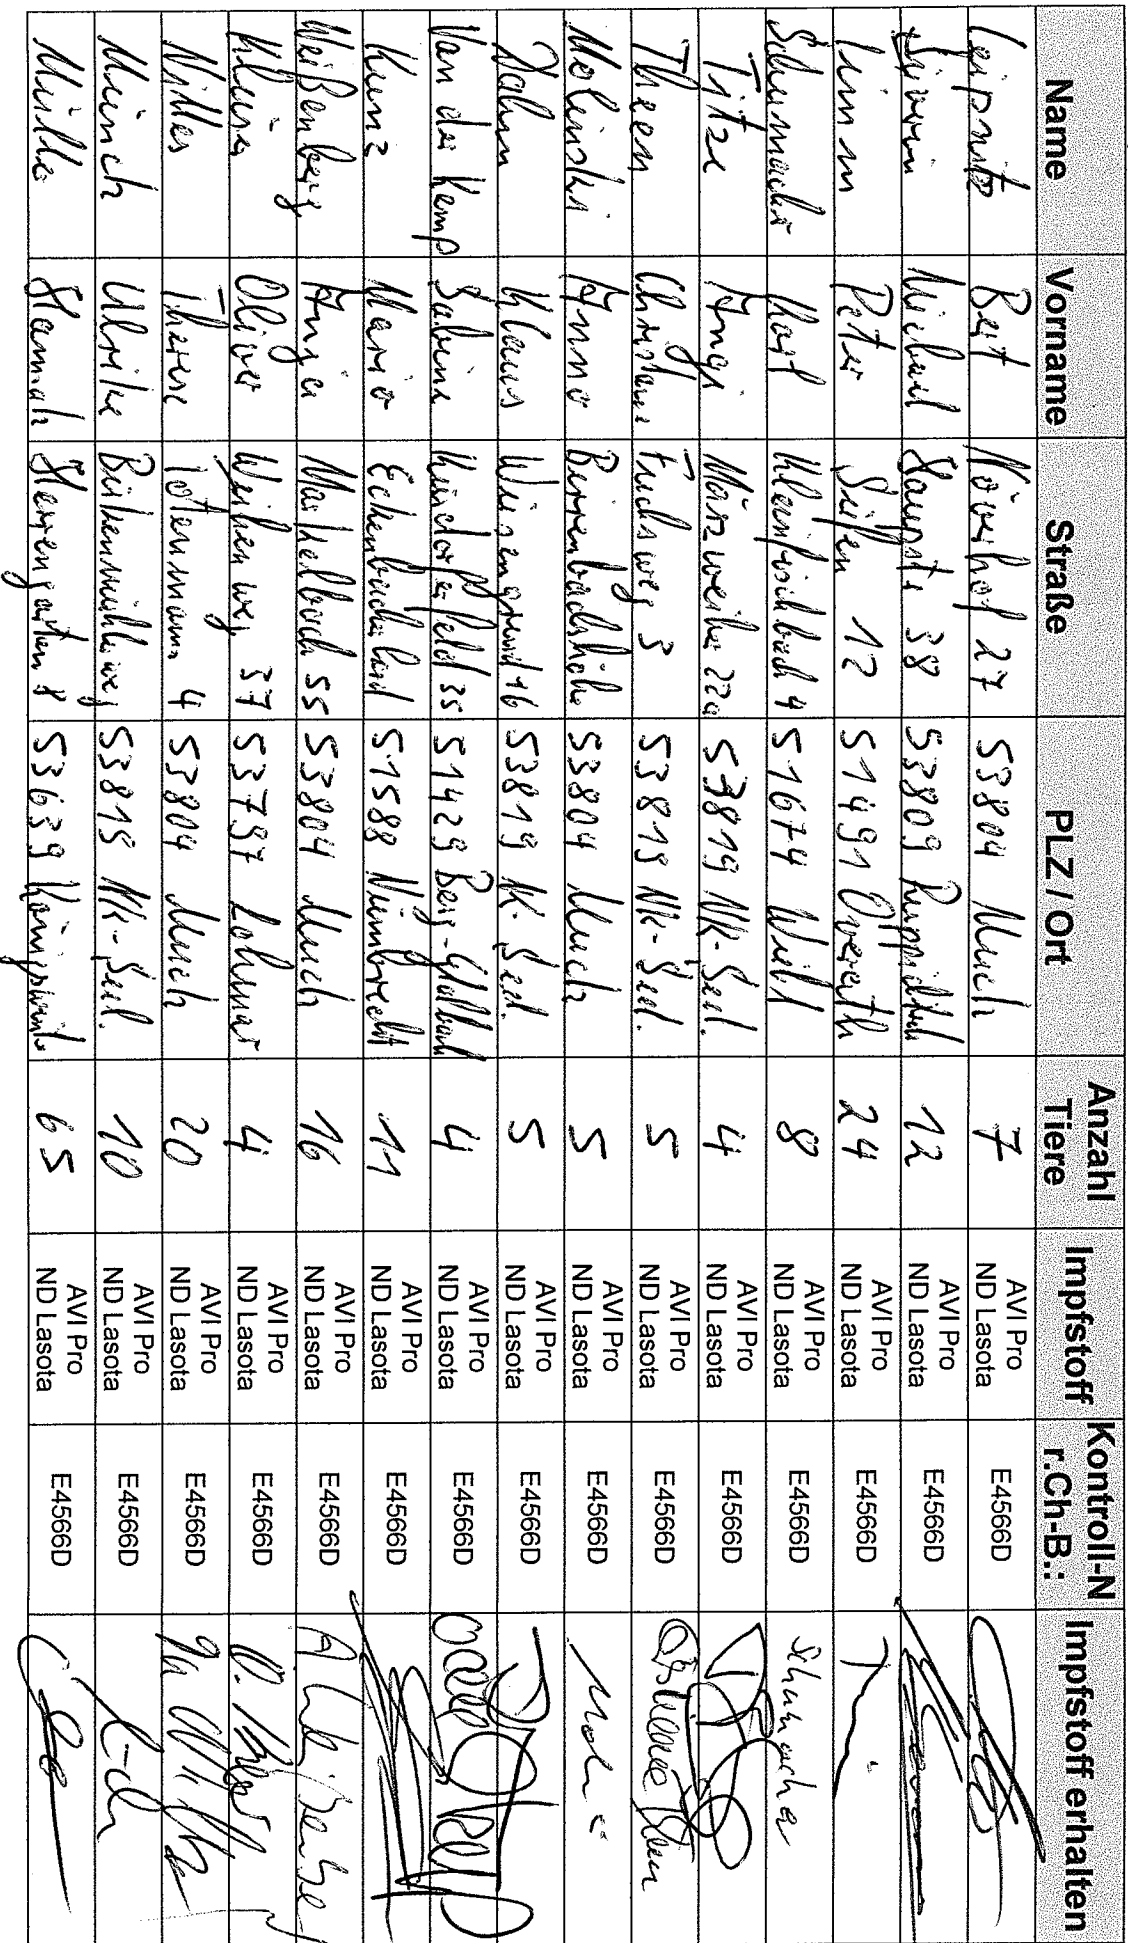 Name Vorname Straße PLZ / Ort Anzahl Tiere Impfstoff Kontroll-N r.Ch-B.: Impfstoff erhalten
Leipnitz Bert Növerhof 27 53804 Much 7 AVI Pro ND Lasota E4566D
Michael Hauptstr 38 53809 Ruppichth 12 AVI Pro ND Lasota E4566D
Timm Peter Siefen 12 51491 Overath 24 AVI Pro ND Lasota E4566D
Schumacher Karl Kleinfischbach 4 51674 Wiehl 8 AVI Pro ND Lasota E4566D Schumacher
Titze Antje Märzweiher 22a 53819 Nk-Seel. 4 AVI Pro ND Lasota E4566D
Theen Christiane Fuchsweg 3 53819 Nk-Seel. 5 AVI Pro ND Lasota E4566D
Molinski Anno Birrenbachshöhe 53804 Much 5 AVI Pro ND Lasota E4566D
Dahm Klaus Wiesengrund 16 53819 N.-Seel. 5 AVI Pro ND Lasota E4566D
Van der Kemp Sabine feld 35 51429 Berg-Gladbach 4 AVI Pro ND Lasota E4566D
Kunz Mario 51588 Nümbrecht 11 AVI Pro ND Lasota E4566D
Weißenberg Anja Markelsbach 55 53804 Much 16 AVI Pro ND Lasota E4566D
Oliver Weiherweg 37 53797 Lohmar 4 AVI Pro ND Lasota E4566D
Therese Totenmann 4 53804 Much 20 AVI Pro ND Lasota E4566D
Münch Ulrike Birkenmühleweg 53819 Nk-Seel. 10 AVI Pro ND Lasota E4566D
Müller Hannah Herrengarten 8 53639 Königswinter 65 AVI Pro ND Lasota E4566D